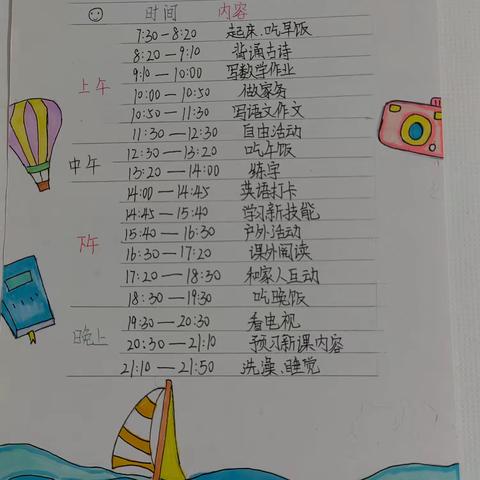 时间 内容
上午
7:30—8:20 起床、吃早饭
8:20—9:10 背诵古诗
9:10—10:00 写数学作业
10:00—10:50 做家务
10:50—11:30 写语文作文
11:30—12:30 自由活动
中午
12:30—13:20 吃午饭
13:20—14:00 练字
下午
14:00—14:45 英语打卡
14:45—15:40 学习新技能
15:40—16:30 户外活动
16:30—17:20 课外阅读
17:20—18:30 和家人互动
18:30—19:30 吃晚饭
晚上
19:30—20:30 看电视
20:30—21:10 预习新课内容
21:10—21:50 洗澡、睡觉